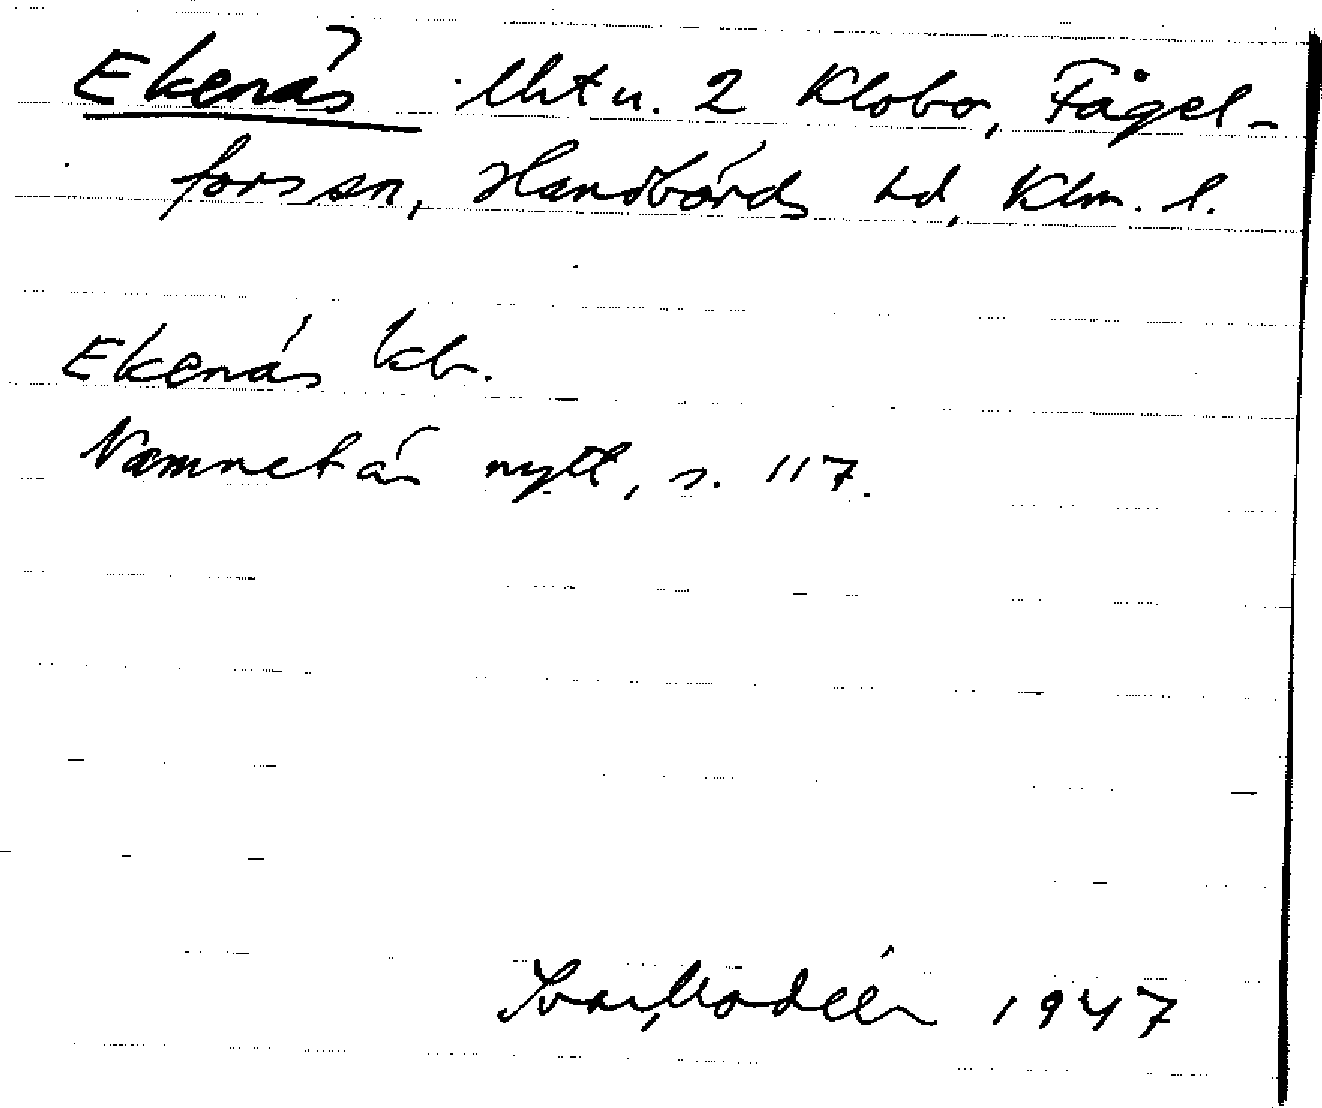 Ekenäs lht u. 2 Klobo, Fågel-
fors sn, Handbörds hd, Klm. l.
Ekenäs kb.
Namnet är nytt, s. 117.
Ivar Modéer 1947